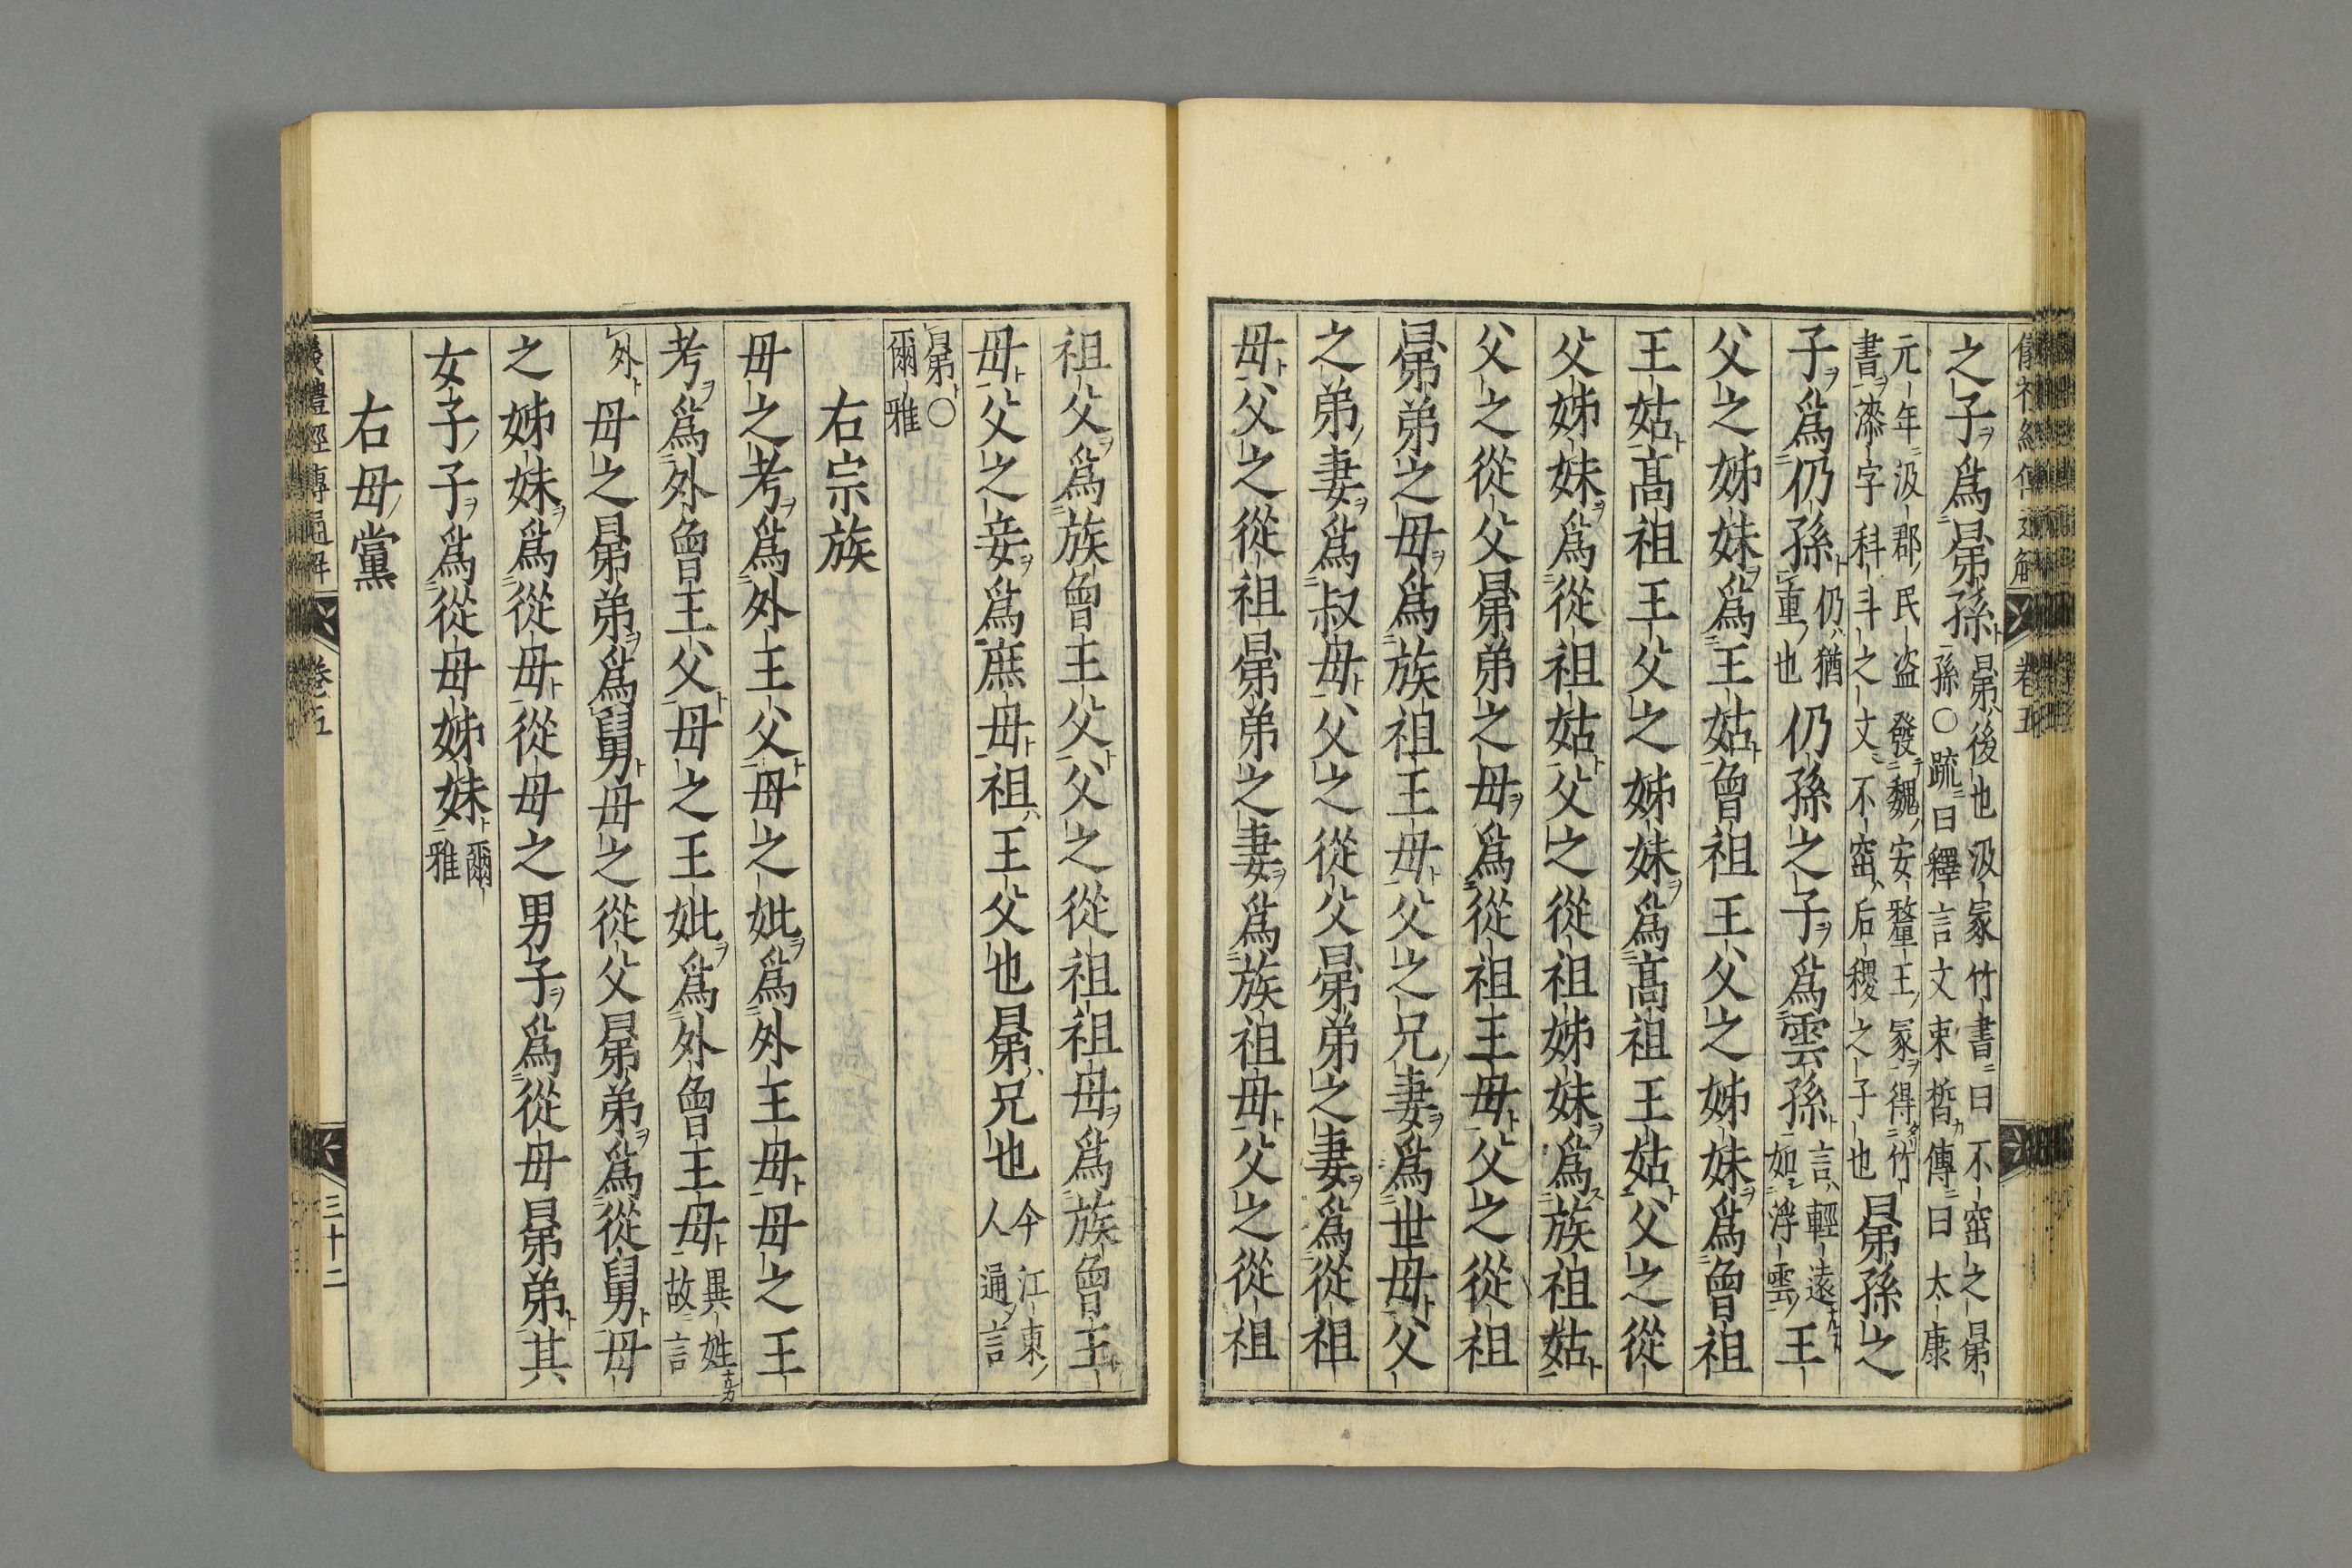 儀禮經傳通解 卷五
之子爲晜孫晜後也汲冢竹書曰不窋之晜
孫〇疏曰釋言文束晳傳曰太康
元年汲郡民盗發魏安釐王冢得竹
書漆字科斗之文不窋后稷之子也晜孫之
子爲仍孫仍猶
重也仍孫之子爲雲孫言輕遠
如浮雲王
父之姊妹爲王姑曾祖王父之姊妹爲曾祖
王姑高祖王父之姊妹爲高祖王姑父之從
父姊妹爲從祖姑父之從祖姊妹爲族祖姑
父之從父晜弟之母爲從祖王母父之從祖
晜弟之母爲族祖王母父之兄妻爲世母父
之弟妻爲叔母父之從父晜弟之妻爲從祖
母父之從祖晜弟之妻爲族祖母父之從祖
祖父爲族曾王父父之從祖祖母爲族曾王
母父之妾爲庶母祖王父也晜兄也今江東
人通言
晜〇
爾雅
右宗族
母之考爲外王父母之妣爲外王母母之王
考爲外曾王父母之王妣爲外曾王母異姓
故言
外母之晜弟爲舅母之從父晜弟爲從舅母
之姊妹爲從母從母之男子爲從母晜弟其
女子子爲從母姊妹爾
雅
右母黨
儀禮經傳通解 卷五 三十二